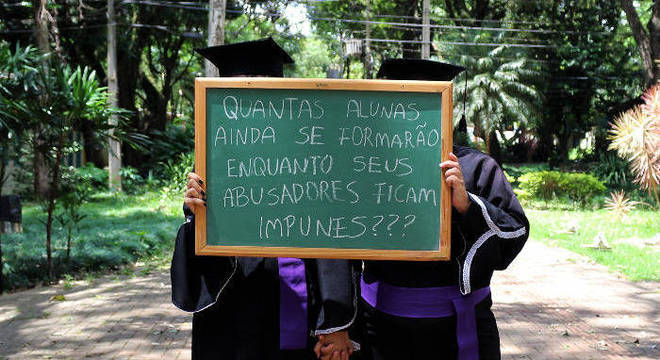 QUANTAS ALUNAS
AINDA SE FORMARÃO
ENQUANTO SEUS
ABUSADORES FICAM
IMPUNES???